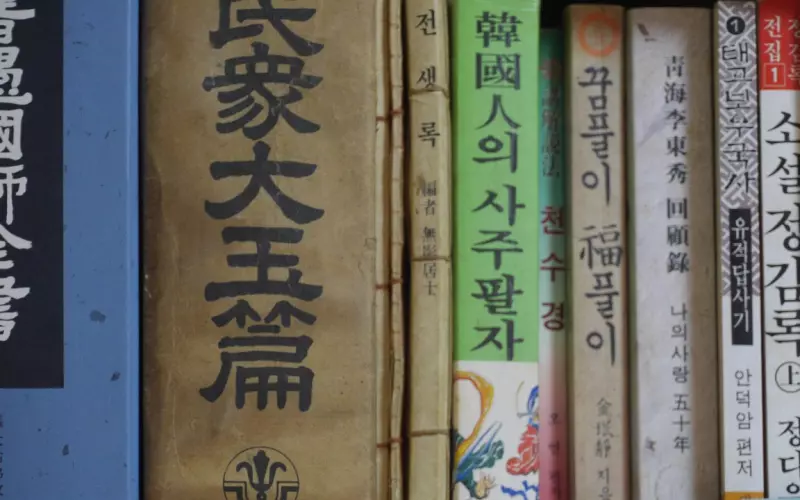 普愚國師全書
民衆大玉篇
전생록
編者 無影居士
韓國人의 사주팔자
천수경
꿈풀이 福풀이
지음
靑海李東秀 回顧錄
나의사랑 五十年
1
태고보우국사
유적답사기
안덕암 편저
정감록
전집 1
소설 정감록 上